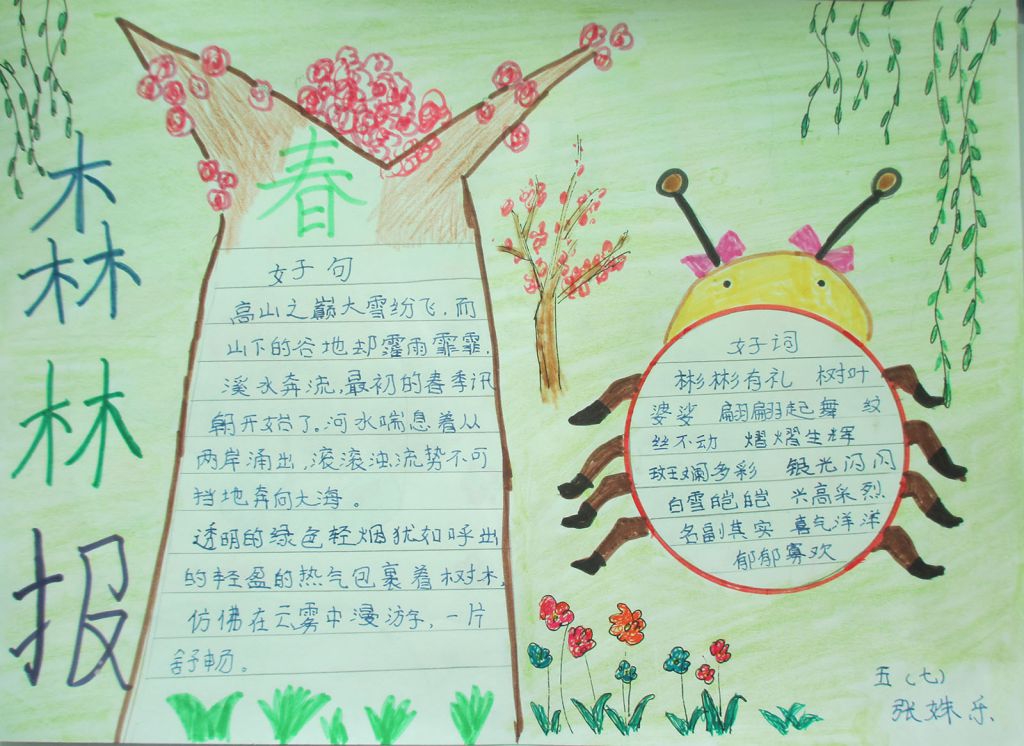 森
林
报
春
好句
高山之巅大雪纷飞,而
山下的谷地却霪雨霏霏,
溪水奔流,最初的春季讯
朝开始了。河水喘息着从
两岸涌出,滚滚浊流势不可
挡地奔向大海。
透明的绿色轻烟犹如呼出
的轻盈的热气包裹着树木,
仿佛在云雾中漫游,一片
舒畅。
好词
彬彬有礼 树叶
婆娑 翩翩起舞 纹
丝不动 熠熠生辉
斑斓多彩 银光闪闪
白雪皑皑 兴高采烈
名副其实 喜气洋洋
郁郁寡欢
五(七)
张姝乐